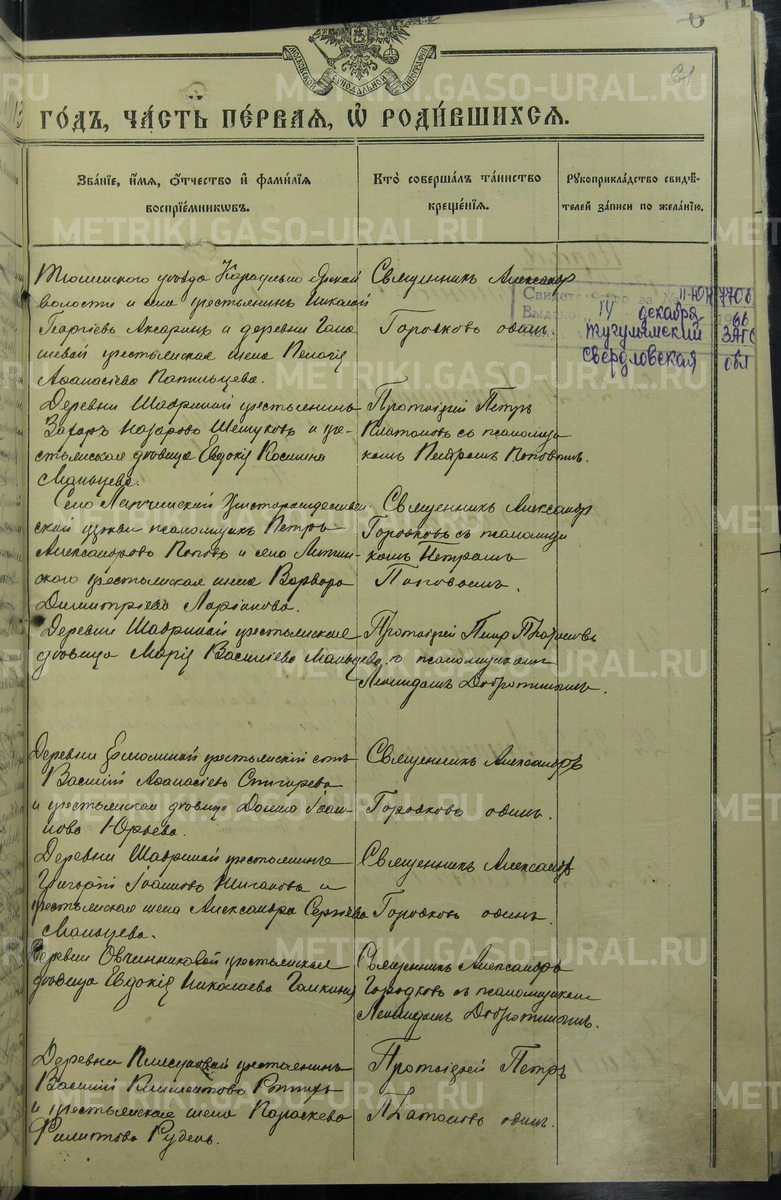 МОСКОВСКОЙ СѴНОДАЛЬНОЙ ТИПОГРАФІИ
6
61
1913
ГОДЪ, ЧАСТЬ ПЕРВАЯ, Ѡ РОДИВШИХСЯ.
Званіе, имя, отчество и фамилія воспріемниковъ.
Кто совершалъ таинство крещенія.
Рукоприкладство свидѣтелей записи по желанію.
Тюменскаго уѣзда
волости и села крестьянинъ Николай
Георгіевъ Аксаринъ и деревни Гала
шевой крестьянская жена Пелагія
Аѳанасіева
Священникъ Александр
Городковъ одинъ.
II-ЮН 7706
14 декабря 66
Тугулымский ЗАГС
Свердловская обл
Деревни Шавриной крестьянинъ
Захаръ Назаровъ Шешуковъ и кре-
стьянская дѣвица Евдокія Космина
Мальцева.
Протоіерей Петръ
Платоновъ съ псаломщи
комъ Петромъ Поповымъ.
Христорождествен
ской церкви псаломщикъ Петръ
Александровъ Поповъ и села
ского крестьянская жена Варвара
Димитріева Ларіонова.
Священникъ Александр
Городковъ съ псаломщи
комъ Петромъ
Поповымъ.
Деревни Шавриной крестьянская
дѣвица Марія Василіева Мальцева.
Протоіерей Петръ Платоновъ
съ псаломщикомъ
Леонидомъ
Деревни Ермолиной крестьянскій сынъ
Василій Аѳанасіевъ
и крестьянская дѣвица Домна Іоан-
нова Юрьева.
Священникъ Александръ
Городковъ одинъ.
Деревни Шавриной крестьянинъ
Григорій Іоанновъ и
крестьянская жена Александра Сергѣева
Мальцева.
Священникъ Александр
Городковъ одинъ.
Деревни Овчинниковой крестьянская
дѣвица Евдокія Николаева Галкина
Священникъ Александръ
Городковъ съ псаломщикомъ
Леонидомъ
Деревни крестьянинъ
Василій Климентовъ
и крестьянская жена Параскева
Филиппова Рудень.
Протоіерей Петръ
Платоновъ одинъ.
METRIKI.GASO-URAL.RU